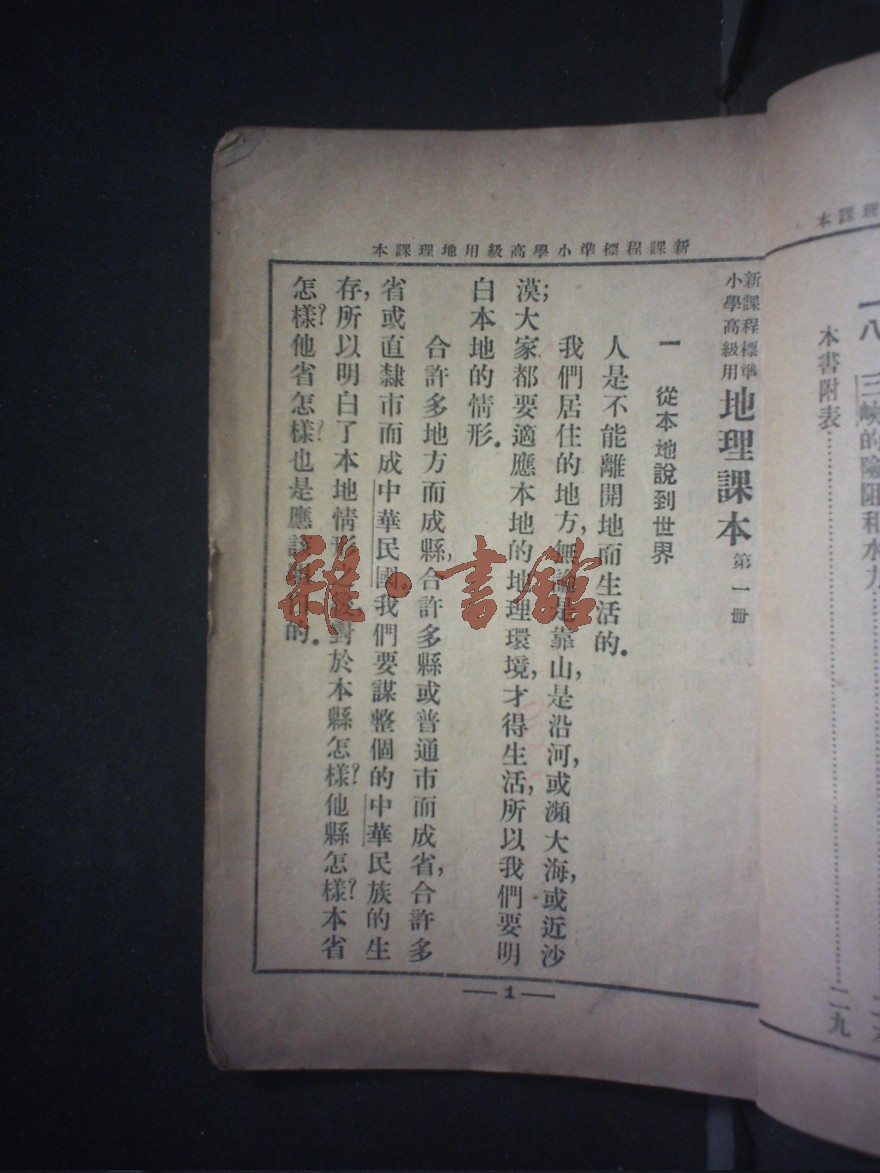 本課理地用級高學小準標程課新
新課程標準
小學高級用
地理課本 第一冊
一 從本地說到世界
人是不能離開地而生活的。
我們居住的地方，無論是靠山，是沿河，或瀕大海，或近沙
漠；大家都要適應本地的地理環境，才得生活，所以我們要明
白本地的情形。
合許多地方而成縣，合許多縣或普通市而成省，合許多
省或直隸市而成中華民國。我們要謀整個的中華民族的生
存，所以明白了本地情形 對於本縣怎樣？他縣怎樣？本省
怎樣？他省怎樣？也是應該 的。
1
雜·書館
本課理
一八 三峽的險阻和水力
本書附表……二九